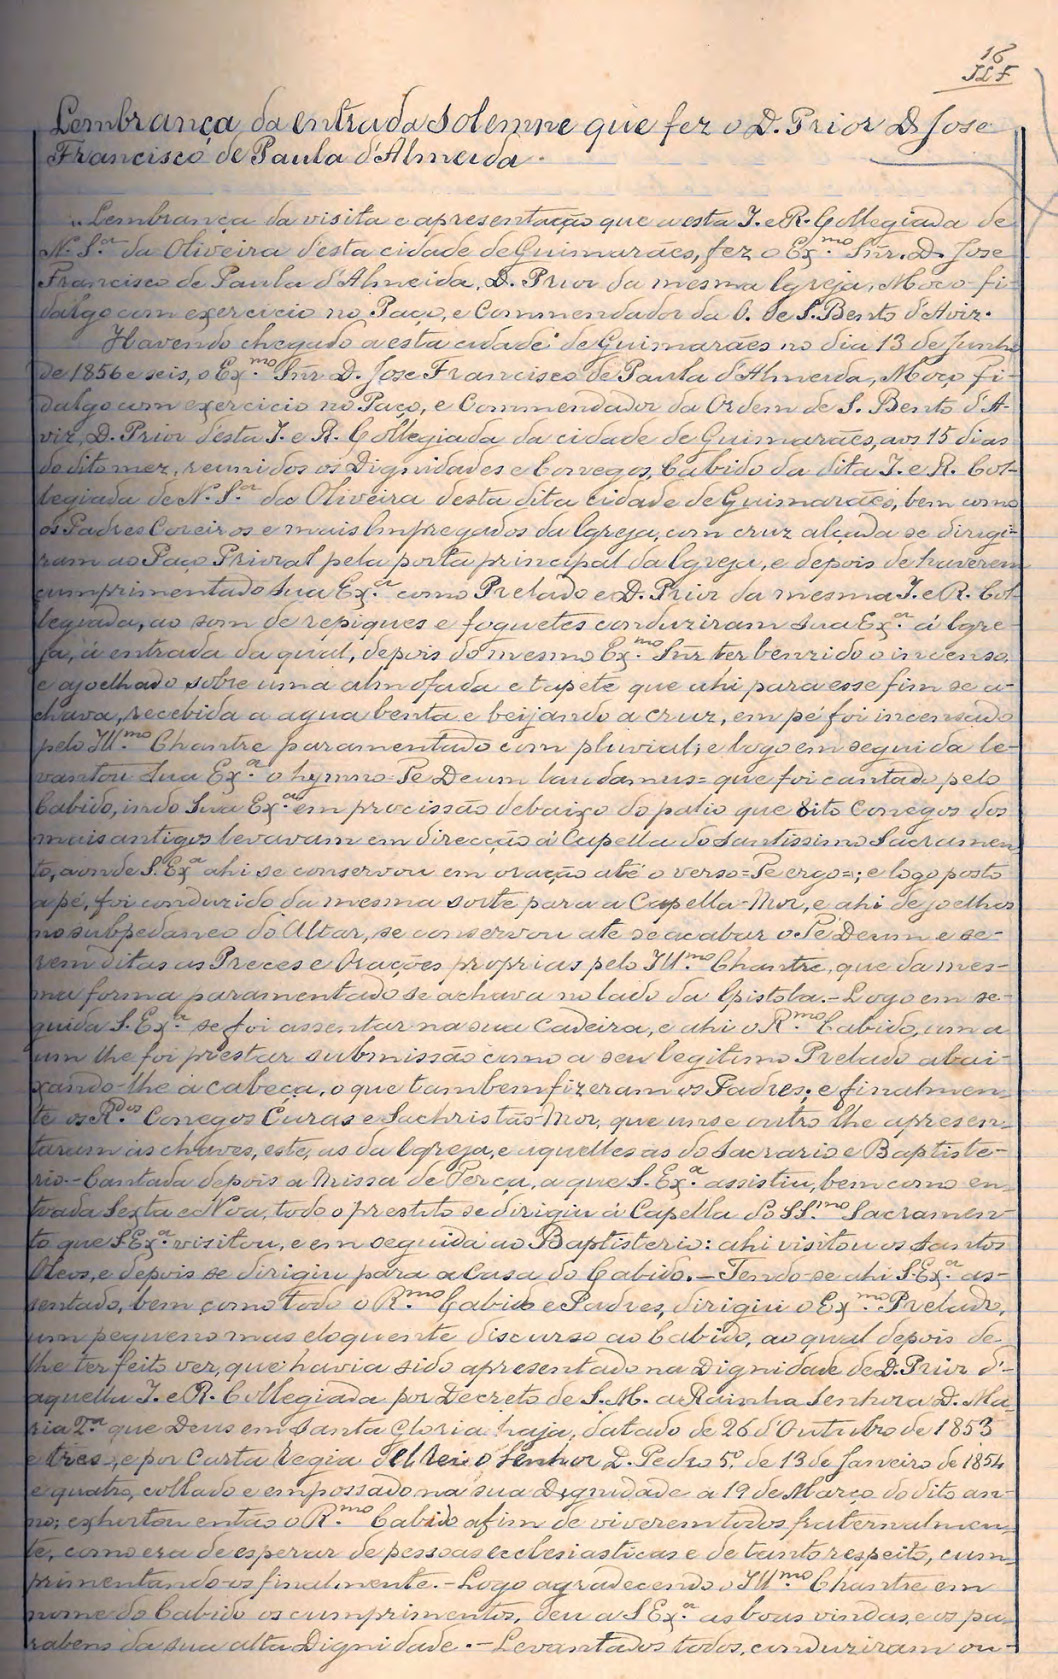 16
JLF
Lembrança da entrada solemne que fez o D. Prior D. Jose
Francisco de Paula d'Almeida.
"Lembrança da visita e apresentação que a esta I. e R. Collegiada de
N. S.ra da Oliveira d'esta cidade de Guimarães, fez o Ex.mo Snr. D. Jose
Francisco de Paula d'Almeida, D. Prior da mesma Igreja, Moço fi-
dalgo com exercicio no Paço, e Commendador da O. de S. Bento d'Aviz.
Havendo chegado a esta cidade de Guimarães no dia 13 de Junho
de 1856 e seis, o Ex.mo Snr D. Jose Francisco de Paula d'Almeida, Moço fi-
dalgo com exercicio no Paço, e Commendador da Ordem de S. Bento d'A-
viz, D. Prior d'esta I. e R. Collegiada da cidade de Guimarães, aos 15 dias
do dito mez, reunidos os Dignidades e Conegos, Cabido da dita I. e R. Col-
legiada de N. S.ra da Oliveira desta dita cidade de Guimarães, bem como
os Padres Coreiros e mais Empregados da Igreja, com cruz alçada se dirigi-
ram ao Paço Prioral pela porta principal da Igreja, e depois de haverem
cumprimentado Sua Ex.a como Prelado e D. Prior da mesma I. e R. Col-
legiada, ao som de repiques e foguetes conduziram Sua Ex.a á Igre-
ja, á entrada da qual, depois do mesmo Ex.mo Snr. ter benzido o incenso,
e ajoelhado sobre uma almofada e tapete que ahi para esse fim se a-
chava, recebida a agua benta e beijando a cruz, em pé foi incensado
pelo Ill.mo Chantre paramentado com pluvial; e logo em seguida le-
vantou Sua Ex.a o hymno = Te Deum laudamus = que foi cantado pelo
Cabido, indo Sua Ex.a em procissão debaixo do palio que oito Conegos dos
mais antigos levavam em direcção á Capella do Santissimo Sacramen-
to, aonde S. Ex.a ahi se conservou em oração até o verso = Te ergo =; e logo posto
a pé, foi conduzido da mesma sorte para a Capella-Mor, e ahi de joelhos
no subpedaneo do Altar, se conservou até se acabar o Te Deum e se-
rem ditas as Preces e Orações proprias pelo Ill.mo Chantre, que da mes-
ma forma paramentado se achava no lado da Epistola. - Logo em se-
guida S. Ex.a se foi assentar na sua Cadeira, e ahi o R.mo Cabido, um a
um lhe foi prestar submissão como a seu legitimo Prelado abai-
xando-lhe a cabeça, o que tambem fizeram os Padres; e finalmen-
te os R.dos Conegos Curas e Sachristão-Mor, que uns e outro lhe apresen-
taram as chaves, este, as da Igreja, e aquelles as do Sacrario e Baptiste-
rio. - Cantada depois a Missa de Terça, a que S. Ex.a assistiu, bem como en-
toada Sexta e Noa, todo o prestito se dirigiu á Capella do SS.mo Sacramen-
to que S. Ex.a visitou, e em seguida ao Baptisterio: ahi visitou os Santos
Oleos, e depois se dirigiu para a Casa do Cabido. - Tendo-se ahi S. Ex.a as-
sentado, bem como todo o R.mo Cabido e Padres, dirigiu o Ex.mo Prelado,
um pequeno mas eloquente discurso ao Cabido, ao qual depois de
lhe ter feito ver, que havia sido apresentado na Dignidade de D. Prior d'-
aquella I. e R. Collegiada por Decreto de S. M. a Rainha Senhora D. Ma-
ria 2.a que Deus em Santa Gloria haja, datado de 26 d'Outubro de 1853
e tres, e por Carta Regia d'El Rei o Senhor D. Pedro 5.º de 13 de Janeiro de 1854
e quatro, collado e empossado na sua Dignidade a 19 de Março do dito an-
no; exhortou então o R.mo Cabido afim de viverem todos fraternalmen-
te, como era de esperar de pessoas ecclesiasticas e de tanto respeito, cum-
primentando-os finalmente. - Logo agradecendo o Ill.mo Chantre em
nome do Cabido os cumprimentos, deu a S. Ex.a as boas vindas, e os pa-
rabens da sua alta Dignidade. - Levantados todos, conduziram ou-